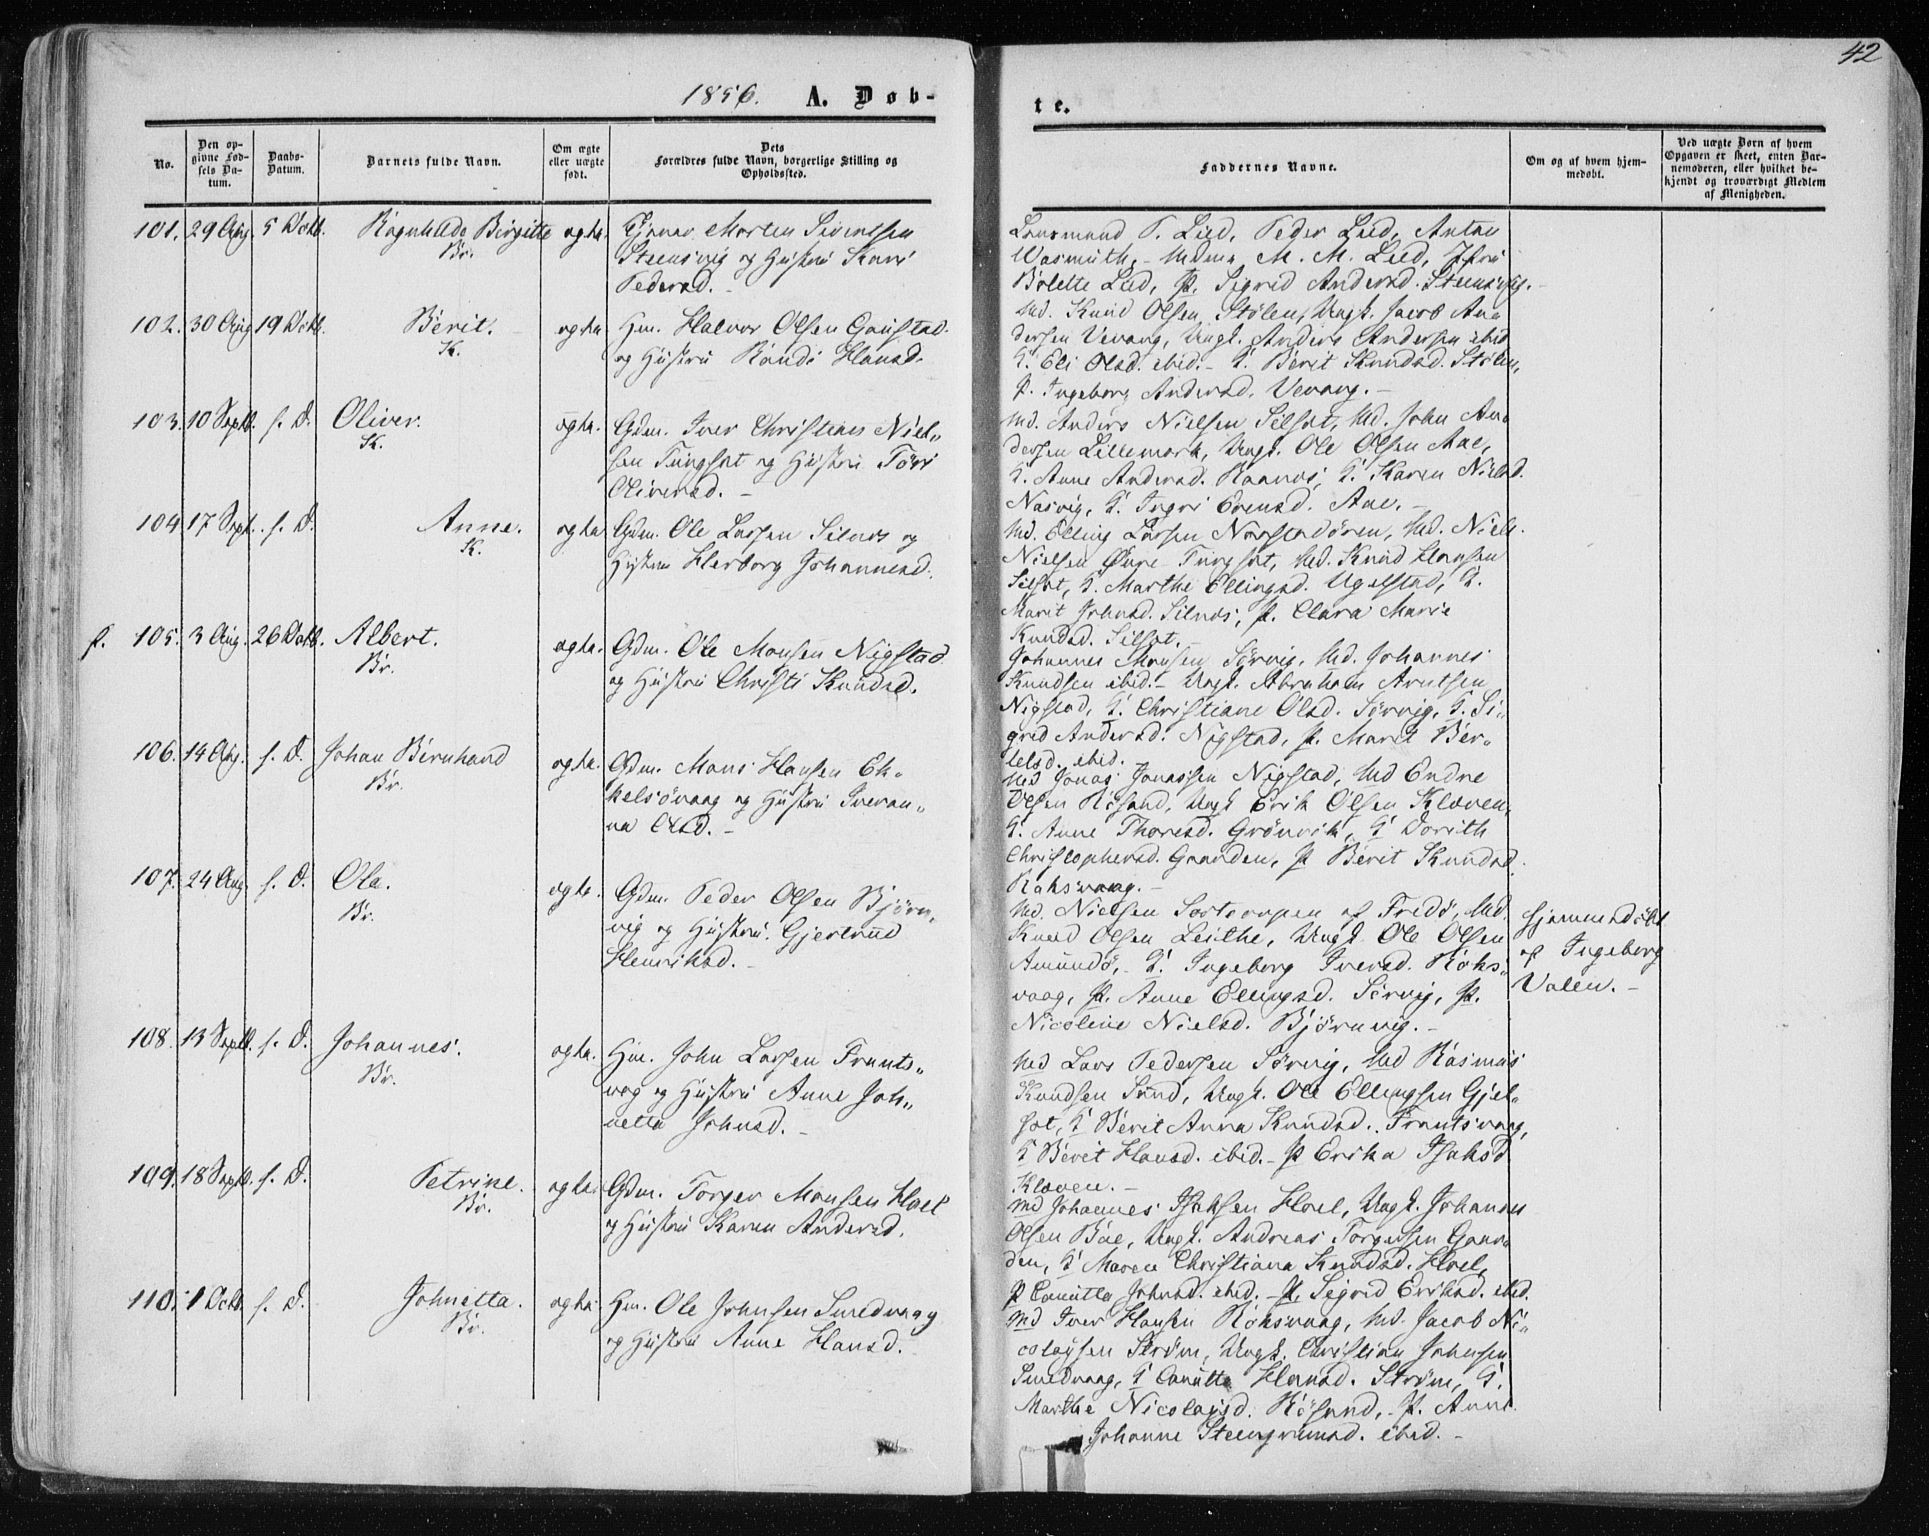 42
1856. A. Døb-
te.
No.
Den op-
givne Fød-
sels Da-
tum.
Daabs-
Datum.
Barnets fulde Navn.
Om ægte
eller uægte
født.
Dets
Forældres fulde Navn, borgerlige Stilling og
Opholdssted.
Faddernes Navne.
Om og af hvem hjem-
medøbt.
Ved uægte Børn af hvem
Opgaven er skeet, enten Bar-
nemoderen, eller hvilket be-
kjendt og troværdigt Medlem
af Menigheden.
101. 29 Aug. 5 Octb. Ragnhilde Birgitte ægte. Morten Sivertsen
Br.
Steensvig og Hustru Kari
Pedersd. -
Lensmand P. Lied, Peder Lied, Anton
Wasmuth, Madme M. M. Lied, Jfru
Bolette Lied, P. Sigrid Andersd. Steensvig. -
102. 30 Aug 19 Octb. Berit. ægte Hm. Halvor Olsen Gaustad
K.
og Hustru Randi Hansd.
Md. Knud Olsen Stølen, Ungk. Jacob An-
dersen Vevang, Ungk. Anders Andersen ibid
G. Eli Olsd. ibid. - G. Berit Knudsd. Stølen,
P. Ingeborg Andersd. Vevang. -
103. 10 Septb. s. D. Oliver. ægte. Gdm. Iver Christian Niel-
K.
sen Tungsæt og Hustru Töri
Oliversd. -
Md. Anders Nielsen Silsæt, Md. John An-
dersen Lillemork, Ungk. Ole Olsen Aae,
G. Anne Andersd. Raanes, G. Karen Nielsd.
Nasvig, G. Ingri Evensd. Aae. -
104 17 Sept. s. D. Anne. ægte Gdm. Ole Larsen Silnes og
K.
Hustru Herborg Johannesd.
Md. Elling Larsen Naastadören, Md. Niels
Nielsen Øvre Tungsæt, Md. Knud Hansen
Silsæt, G. Marthe Ellingsd. Ugelstad, G.
Marit Johnsd. Silnes, P. Clara Marie
Knudsd. Silsæt. -
105. 3 Aug. 26 Octb. Albert. ægte. Gdm. Ole Monsen Nigstad
Br.
og Hustru Christi Knudsd.
Johannes Monsen Sörvig, Md. Johannes
Knudsen ibid. - Ungk. Abraham Arntsen
Nigstad, G. Christiane Olsd. Sörvig, G. Si-
grid Andersd. Nigstad, P. Marit Ber-
telsd. ibid.
106. 14 Aug. s. D. Johan Bernhard ægte. Gdm. Mons Hansen Ek-
Br.
kelsövaag og Hustru Iveran-
na Olsd. -
Md Jonas Jonassen Nigstad, Md Endre
Olsen Rösand, Ungk Erik Olsen Kleven,
G. Anne Thoresd. Grönvik, G Dorith
Christophersd. Gaarden, P Berit Knudsd.
Roksvaag. -
107. 24 Aug. s. D. Ola. ægte. Gdm. Peder Olsen Björn-
Br.
vig og Hustru Gjertrud
Henriksd. -
Md. Nielsen af Fredö, Md.
Knud Olsen Leithe, Ungk. Ole Olsen
Amundö, G. Ingeborg Iversd. Roks-
vaag, P. Anne Ellingsd. Sörvig, P.
Nicoline Nielsd. Björnvig. -
Hjemmedöbt
af Ingeborg
Valen. -
108. 13 Septb. s. D. Johannes. ægte. Hm. John Larsen Frants-
Br.
vog og Hustru Anne Joh-
netta Johnsd. -
Md Lars Pedersen Sörvig, Md Rasmus
Knudsen Sund, Ungk. Ole Ellingsen Gjel-
sæt, G Berit Anna Knudsd. Frantsvaag,
G Berit Hansd. ibid. - P Erika Isaksd
Kleven. -
109. 18 Septb. s. D. Petrine. ægte Gdm. Torger Monsen Hoel
Br.
og Hustru Karen Andersd.
Md Johannes Isaksen Hoel, Ungk. Johannes
Olsen Böe, Ungk. Andreas Torgersen Gaar-
den, G Maren Christiana Knudsd. Hoel,
P Canutta Johnsd. ibid. - P. Sigrid Eriksd. ibid.
110. 1 Octb. s. D. Johnetta. ægte Hm. Ole Johnsen Smedvaag
Br.
og Hustru Anne Hansd.
Md Iver Hansen Roksvaag, Md. Jacob Ni-
colaysen Strøm, Ungk. Christian Johnsen
Smedvaag, G Canutte Hansd. Strøm, G.
Marthe Nicolaisd. Rösand, P. Anne
Johanne Steingrimsd. ibid. -